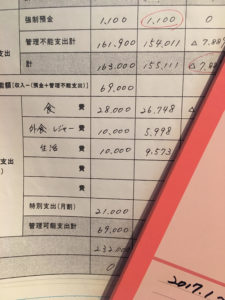 強制預金 1,100 1,100
管理不能支出計 161,900 154,011 △7,889
計 163,000 155,111
額[収入-(預金+管理不能支出)] 69,000
食 費 28,000 26,748
外食 レジャー 費 10,000 5,998
生活 費 10,000 9,573
費
費
特別支出(月割) 21,000
管理可能支出計 69,000
支出
232,000
0
2017.1